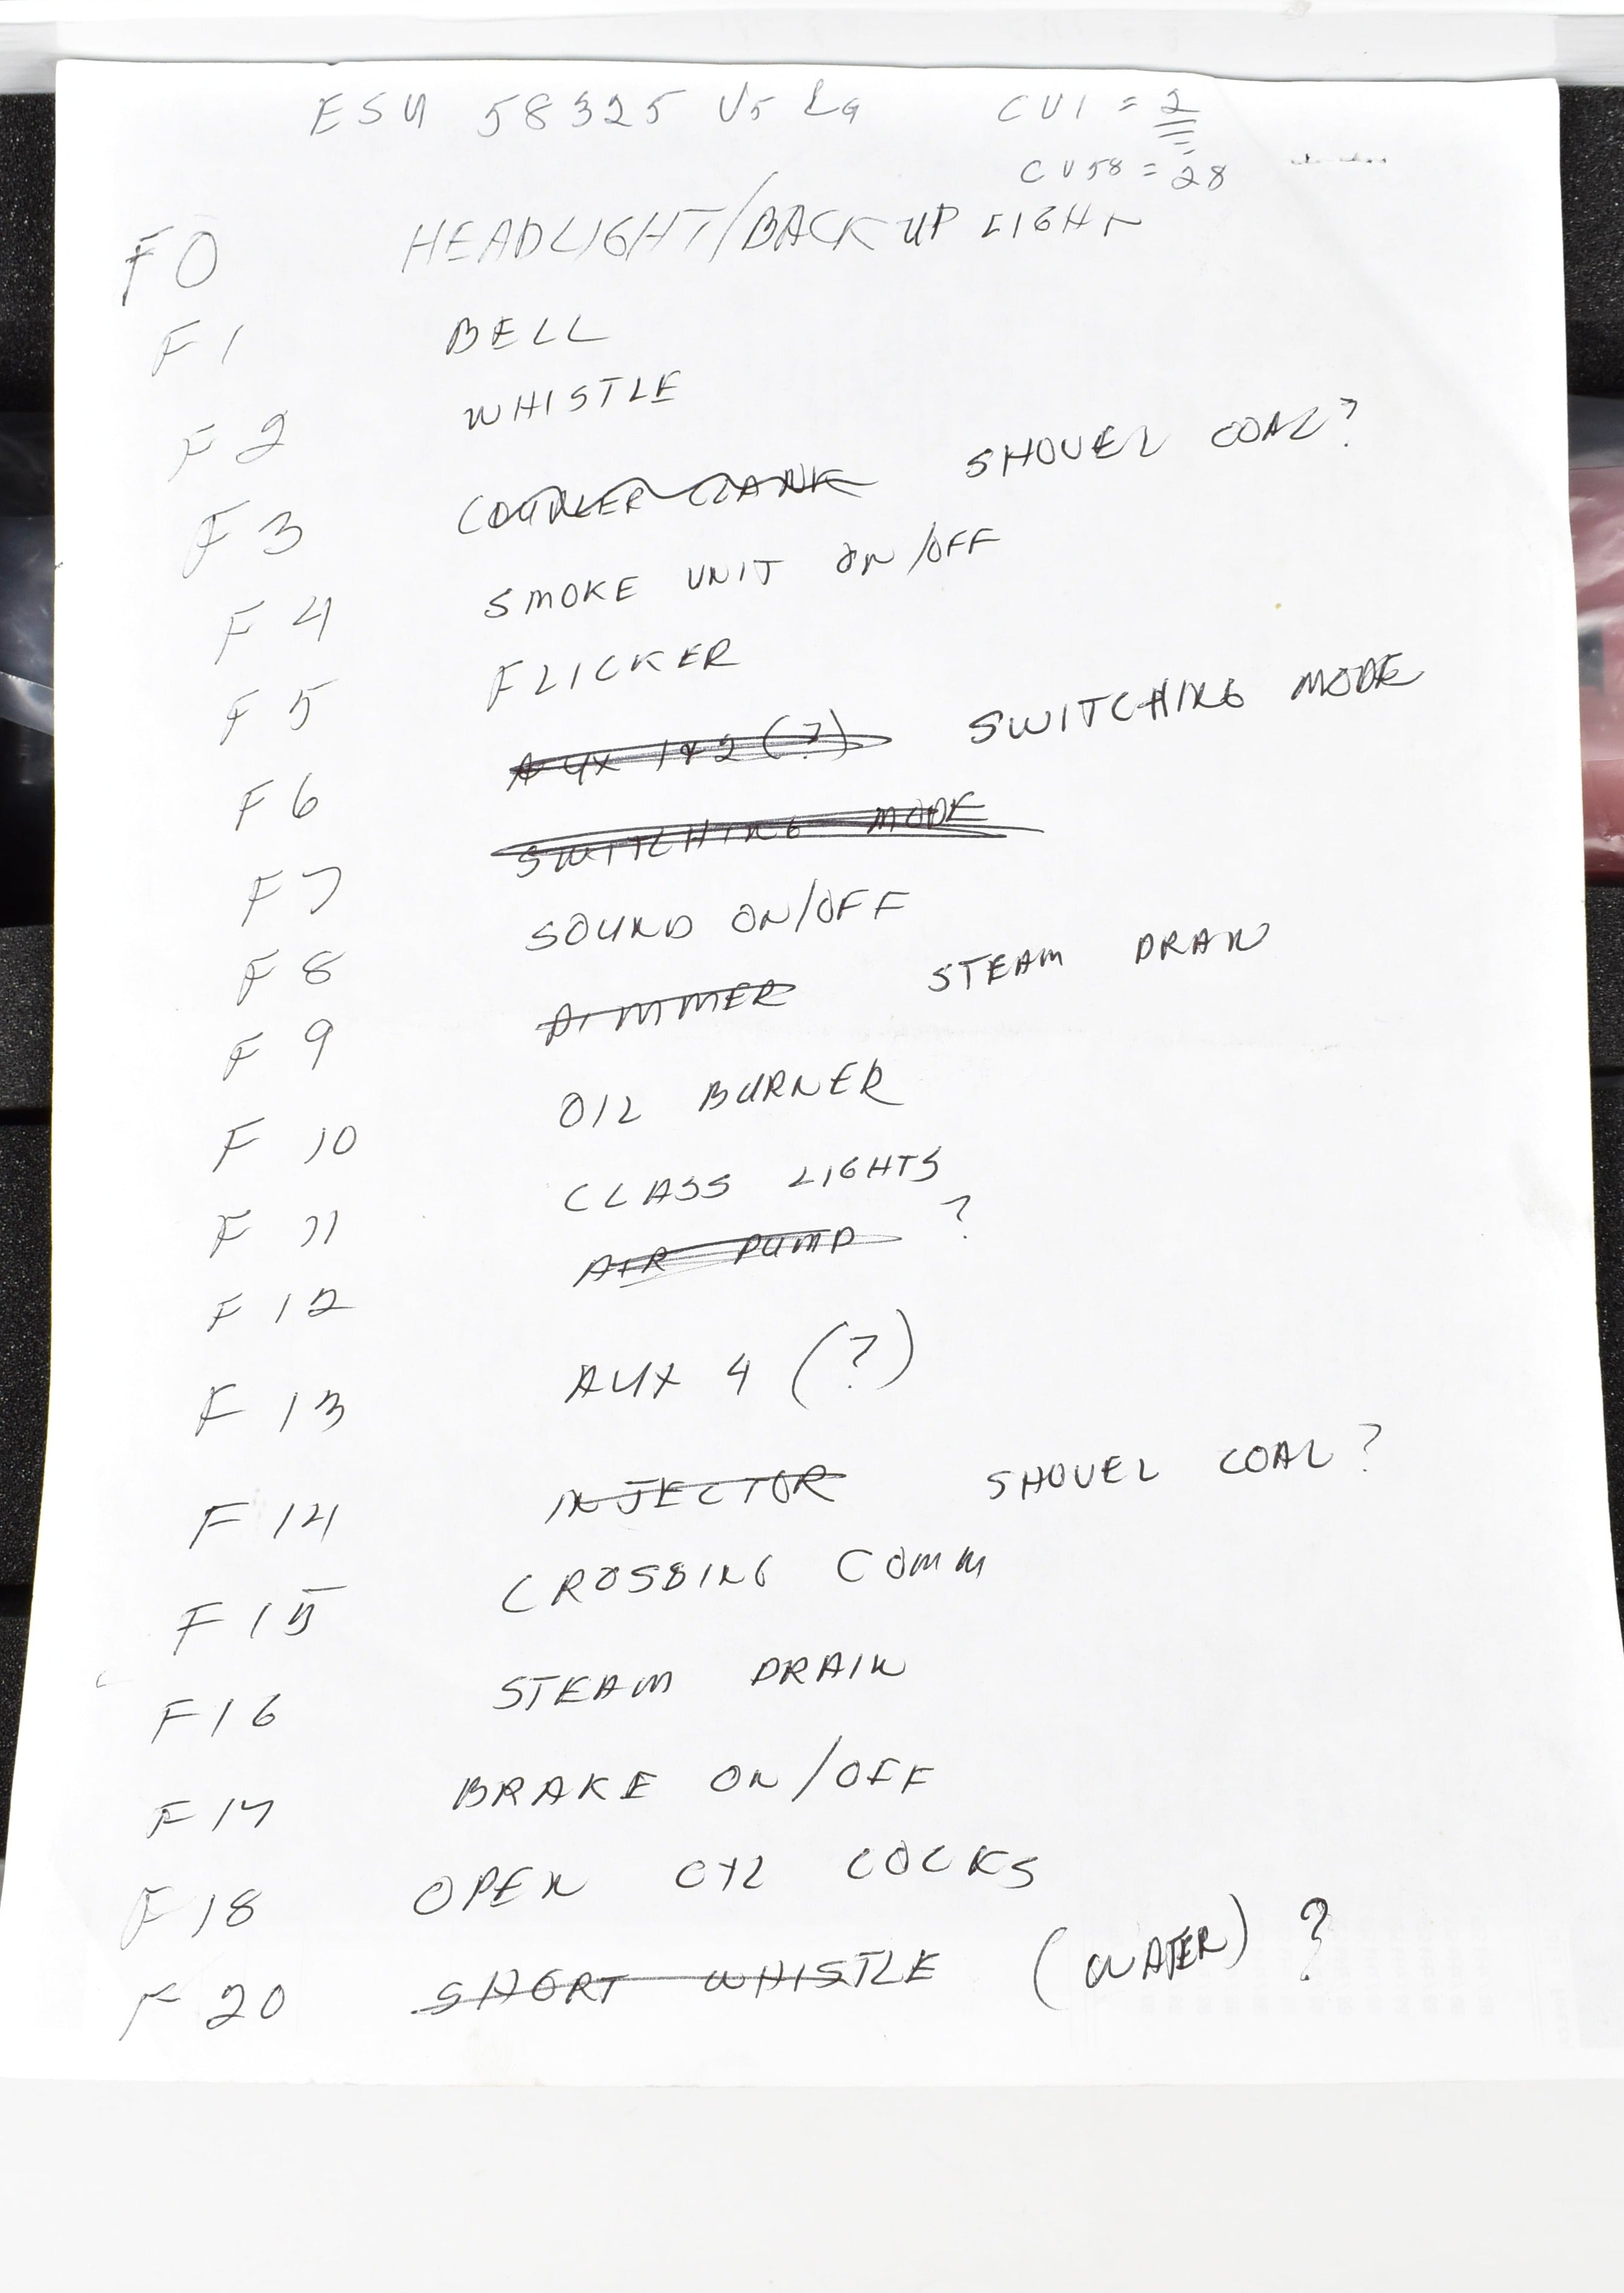 ESU 58325 V5 LG CV1 = 2
CV58 = 28
F0 HEADLIGHT/BACK UP LIGHT
F1 BELL
F2 WHISTLE
F3 COUPLER CLANK SHOVEL COAL?
F4 SMOKE UNIT ON/OFF
F5 FLICKER
F6 AUX 1&2 (?) SWITCHING MODE
F7 SWITCHING MODE
F8 SOUND ON/OFF
F9 DIMMER STEAM DRAIN
F 10 OIL BURNER
F 11 CLASS LIGHTS
F 12 AIR PUMP ?
F 13 AUX 4 (?)
F 14 INJECTOR SHOVEL COAL?
F 15 CROSSING COMM
F 16 STEAM DRAIN
F 17 BRAKE ON/OFF
F 18 OPEN CYL COCKS
F 20 SHORT WHISTLE (WATER) ?